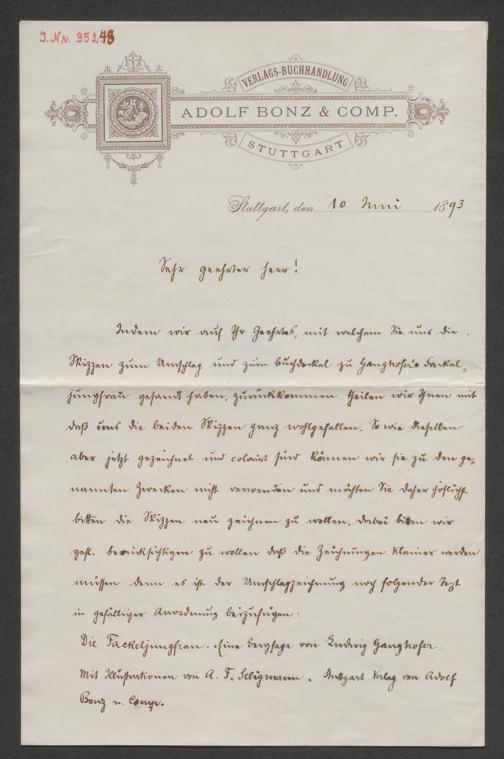 J. Nr. 95248
VERLAGS-BUCHHANDLUNG
ADOLF BONZ & COMP.
STUTTGART
Stuttgart, den 10 Juni 1893
Sehr geehrter Herr!
Indem wir auf Ihr Geehrtes, mit welchem Sie uns die
Skizzen zum Umschlag und zum Buchdeckel zu Ganghofer's Fackel-
jungfrau gesandt haben, zurückkommen theilen wir Ihnen mit
daß uns die beiden Skizzen ganz wohlgefallen. So wie dieselben
aber jetzt gezeichnet und colorirt sind können wir sie zu den ge-
nannten Zwecken nicht verwenden und möchten Sie daher höflichst
bitten die Skizzen neu zeichnen zu wollen. Dabei bitten wir
gefl. berücksichtigen zu wollen daß die Zeichnungen kleiner werden
müssen denn es ist der Umschlagzeichnung noch folgender Text
in gefälliger Anordnung beizufügen:
Die Fackeljungfrau. Eine Bergsage von Ludwig Ganghofer.
Mit Illustrationen von A. F. Seligmann. Stuttgart Verlag von Adolf
Bonz u. Comp.